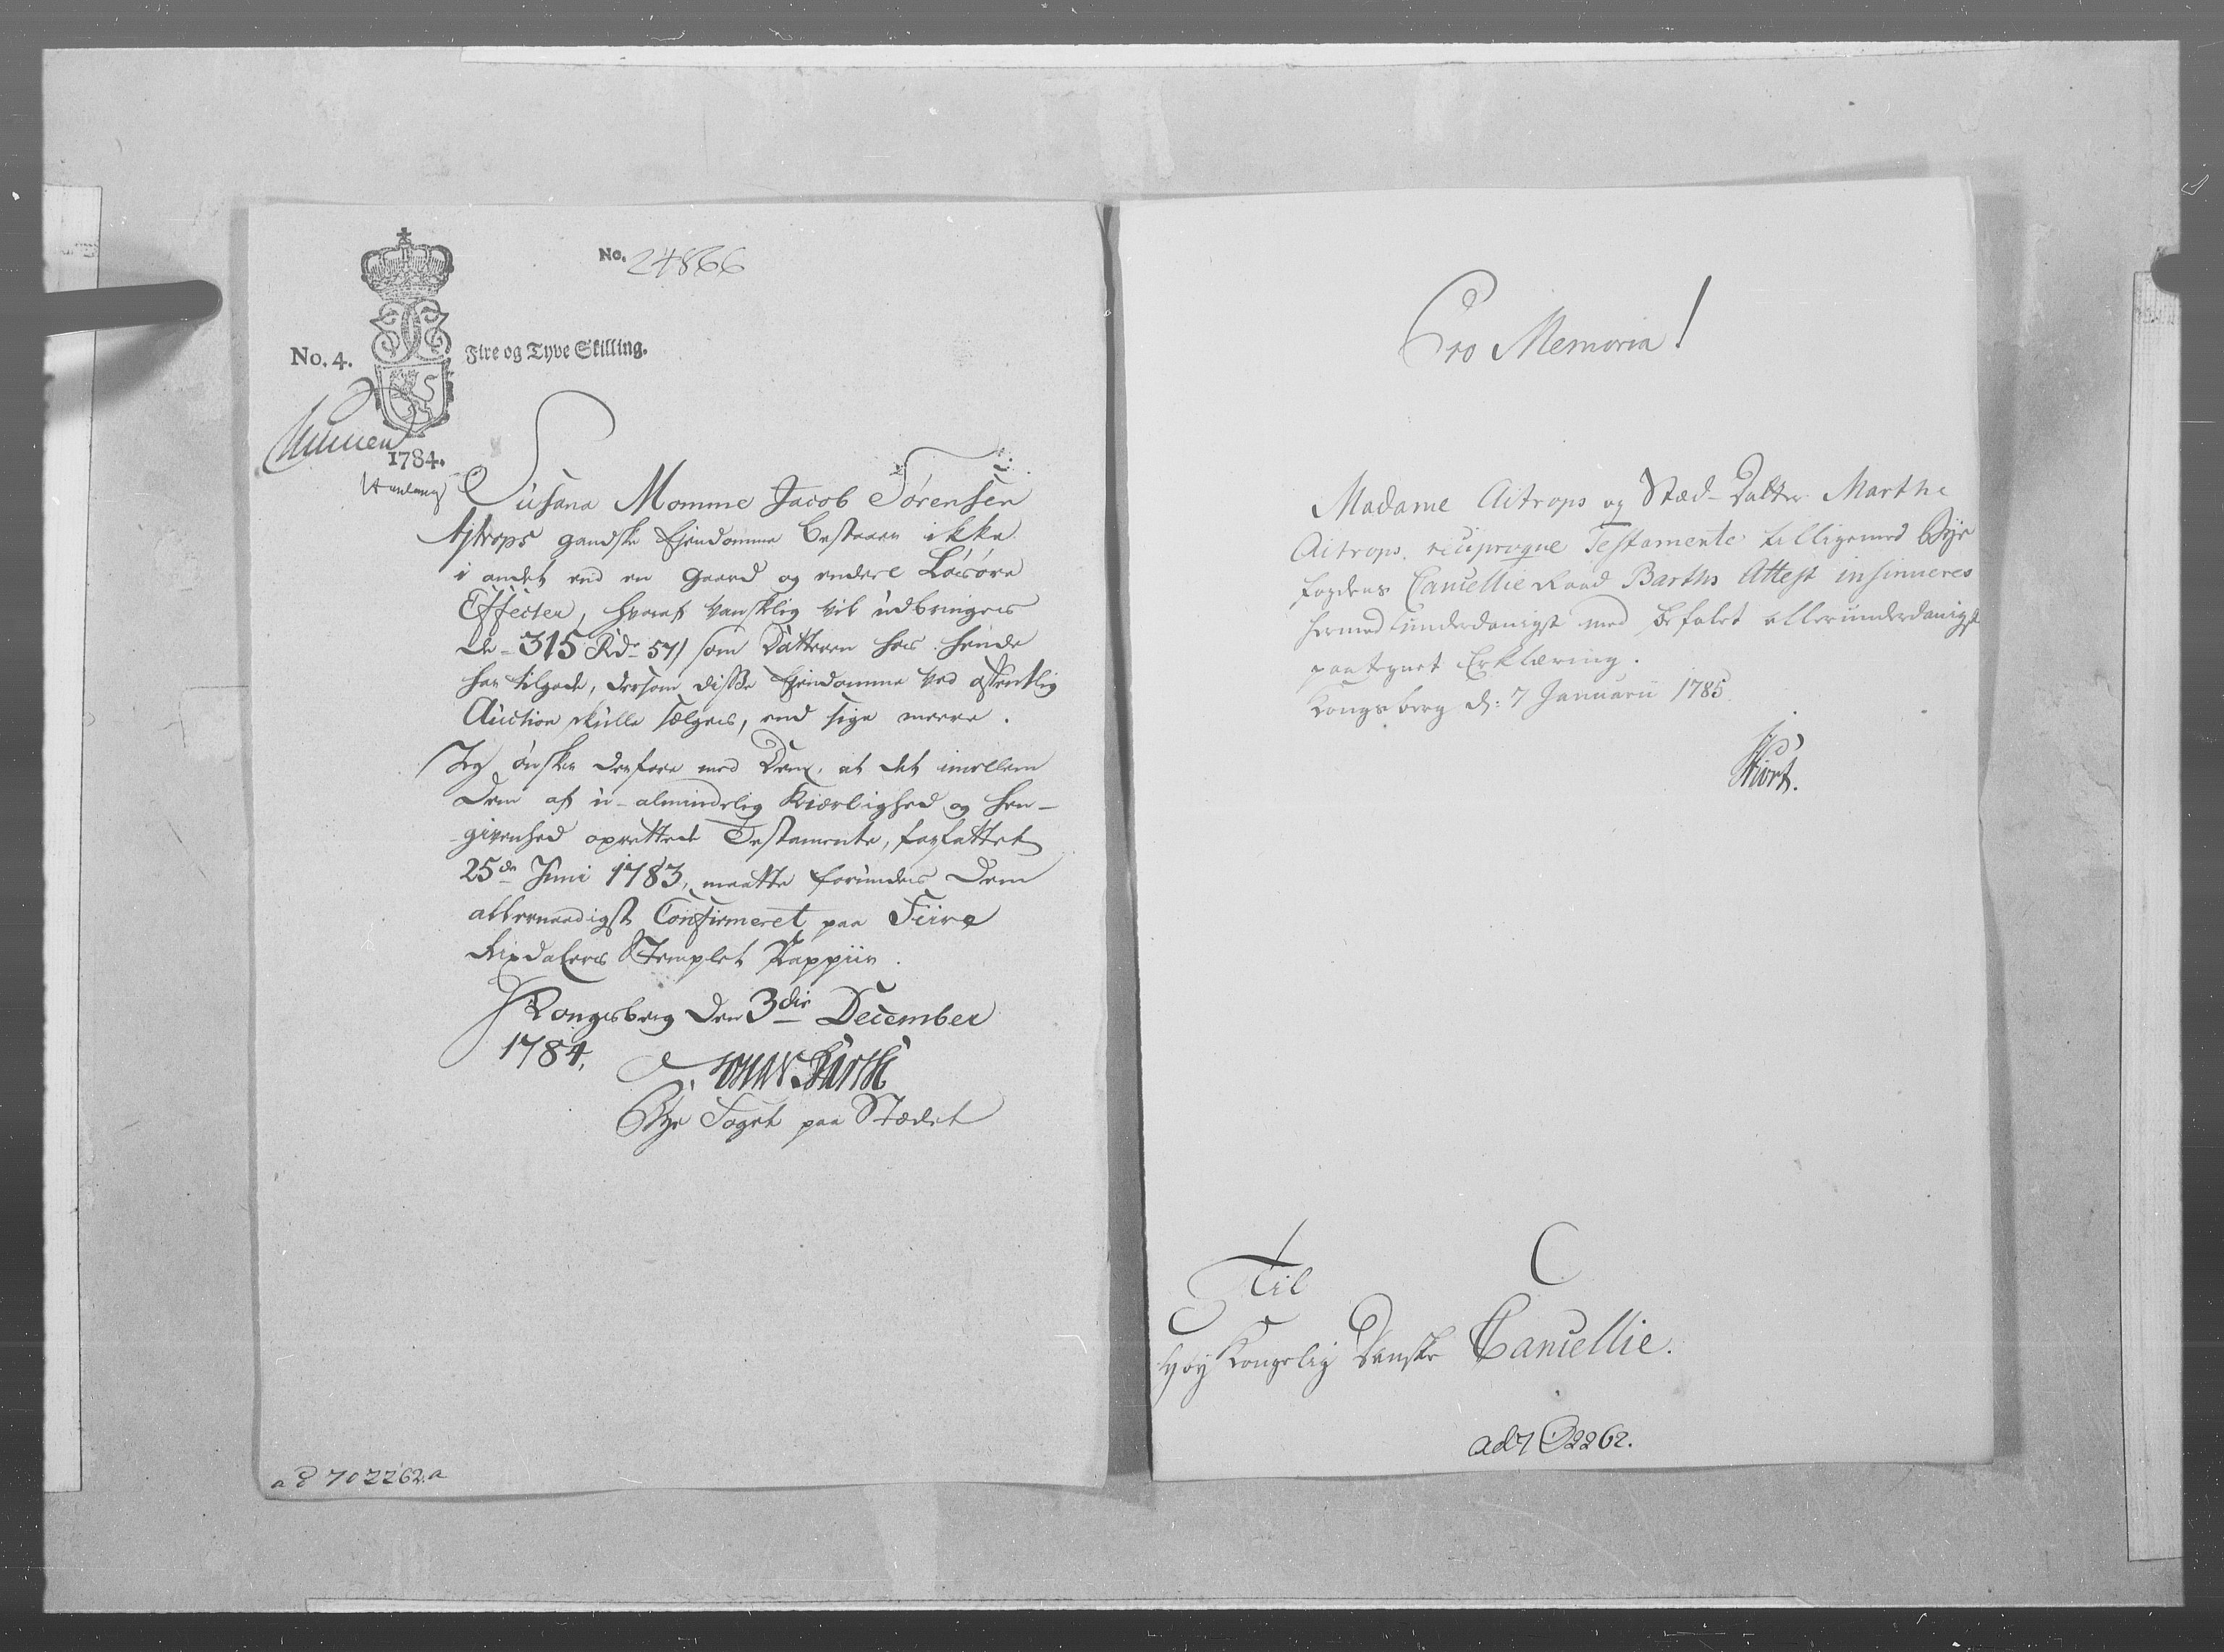 No. 24866
No. 4. Fire og Tyve Skilling.
1784.
Susana Momme Jacob Sørensen
Ajtrops gandske Ejendomme bestaaer ikke
i andet end en gaard og endeel Løsøre
Effecter, hvoraf vanskelig vil udbringes
de 315 Rd. 57 s som Datteren hos hende
har tilgode, dersom disse Ejendomme ved offentlig
Auction skulle sælges, end sige meere.
Jeg ønsker derfore med Dem, at det imellem
Dem af u-almindelig Kierlighed og hen-
givenhed oprettede Testamente, forfattet
25de Juni 1783, maatte forundes Dem
allernaadigst Confirmeret paa Fiire
Rixdalers Stemplet Pappiir.
Kongsberg den 3die December
1784.
Barth
Bye Foget paa Stædet
ad 702262.a
Pro Memoria!
Madame Aitrops og Stæd-Datter Marthe
Aitrops. reciproque Testamente tilligemed Bye
fogdens Cancellie Raad Barths Attest insinueres
hermed underdanigst med befalet allerunderdanigst
paategnet Erklæring.
Kongsberg d: 7 Januarii 1785.
Hiort.
Til
Høy Kongelig Danske Cancellie.
ad 702262.